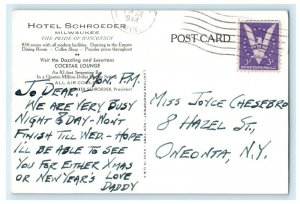 HOTEL SCHROEDER
MILWAUKEE
THE PRIDE OF WISCONSIN
850 rooms with all modern facilities. Dancing in the Empire
Room · Coffee Shop · Popular prices throughout
Visit the Dazzling and Luxurious
COCKTAIL LOUNGE
An 82-foot Serpentine Bar
In a Quarter-Million-Dollar
ALL AIR
SCHROEDER, President
MON. P.M.
TO DEAR,
WE ARE VERY BUSY
NIGHT & DAY - WONT
FINISH TILL WED - HOPE
I'LL BE ABLE TO SEE
YOU FOR EITHER XMAS
OR NEW YEAR'S LOVE
DADDY
POST CARD
MISS JOYCE CHAESEBRO
8 HAZEL ST,
ONEONTA, N.Y.